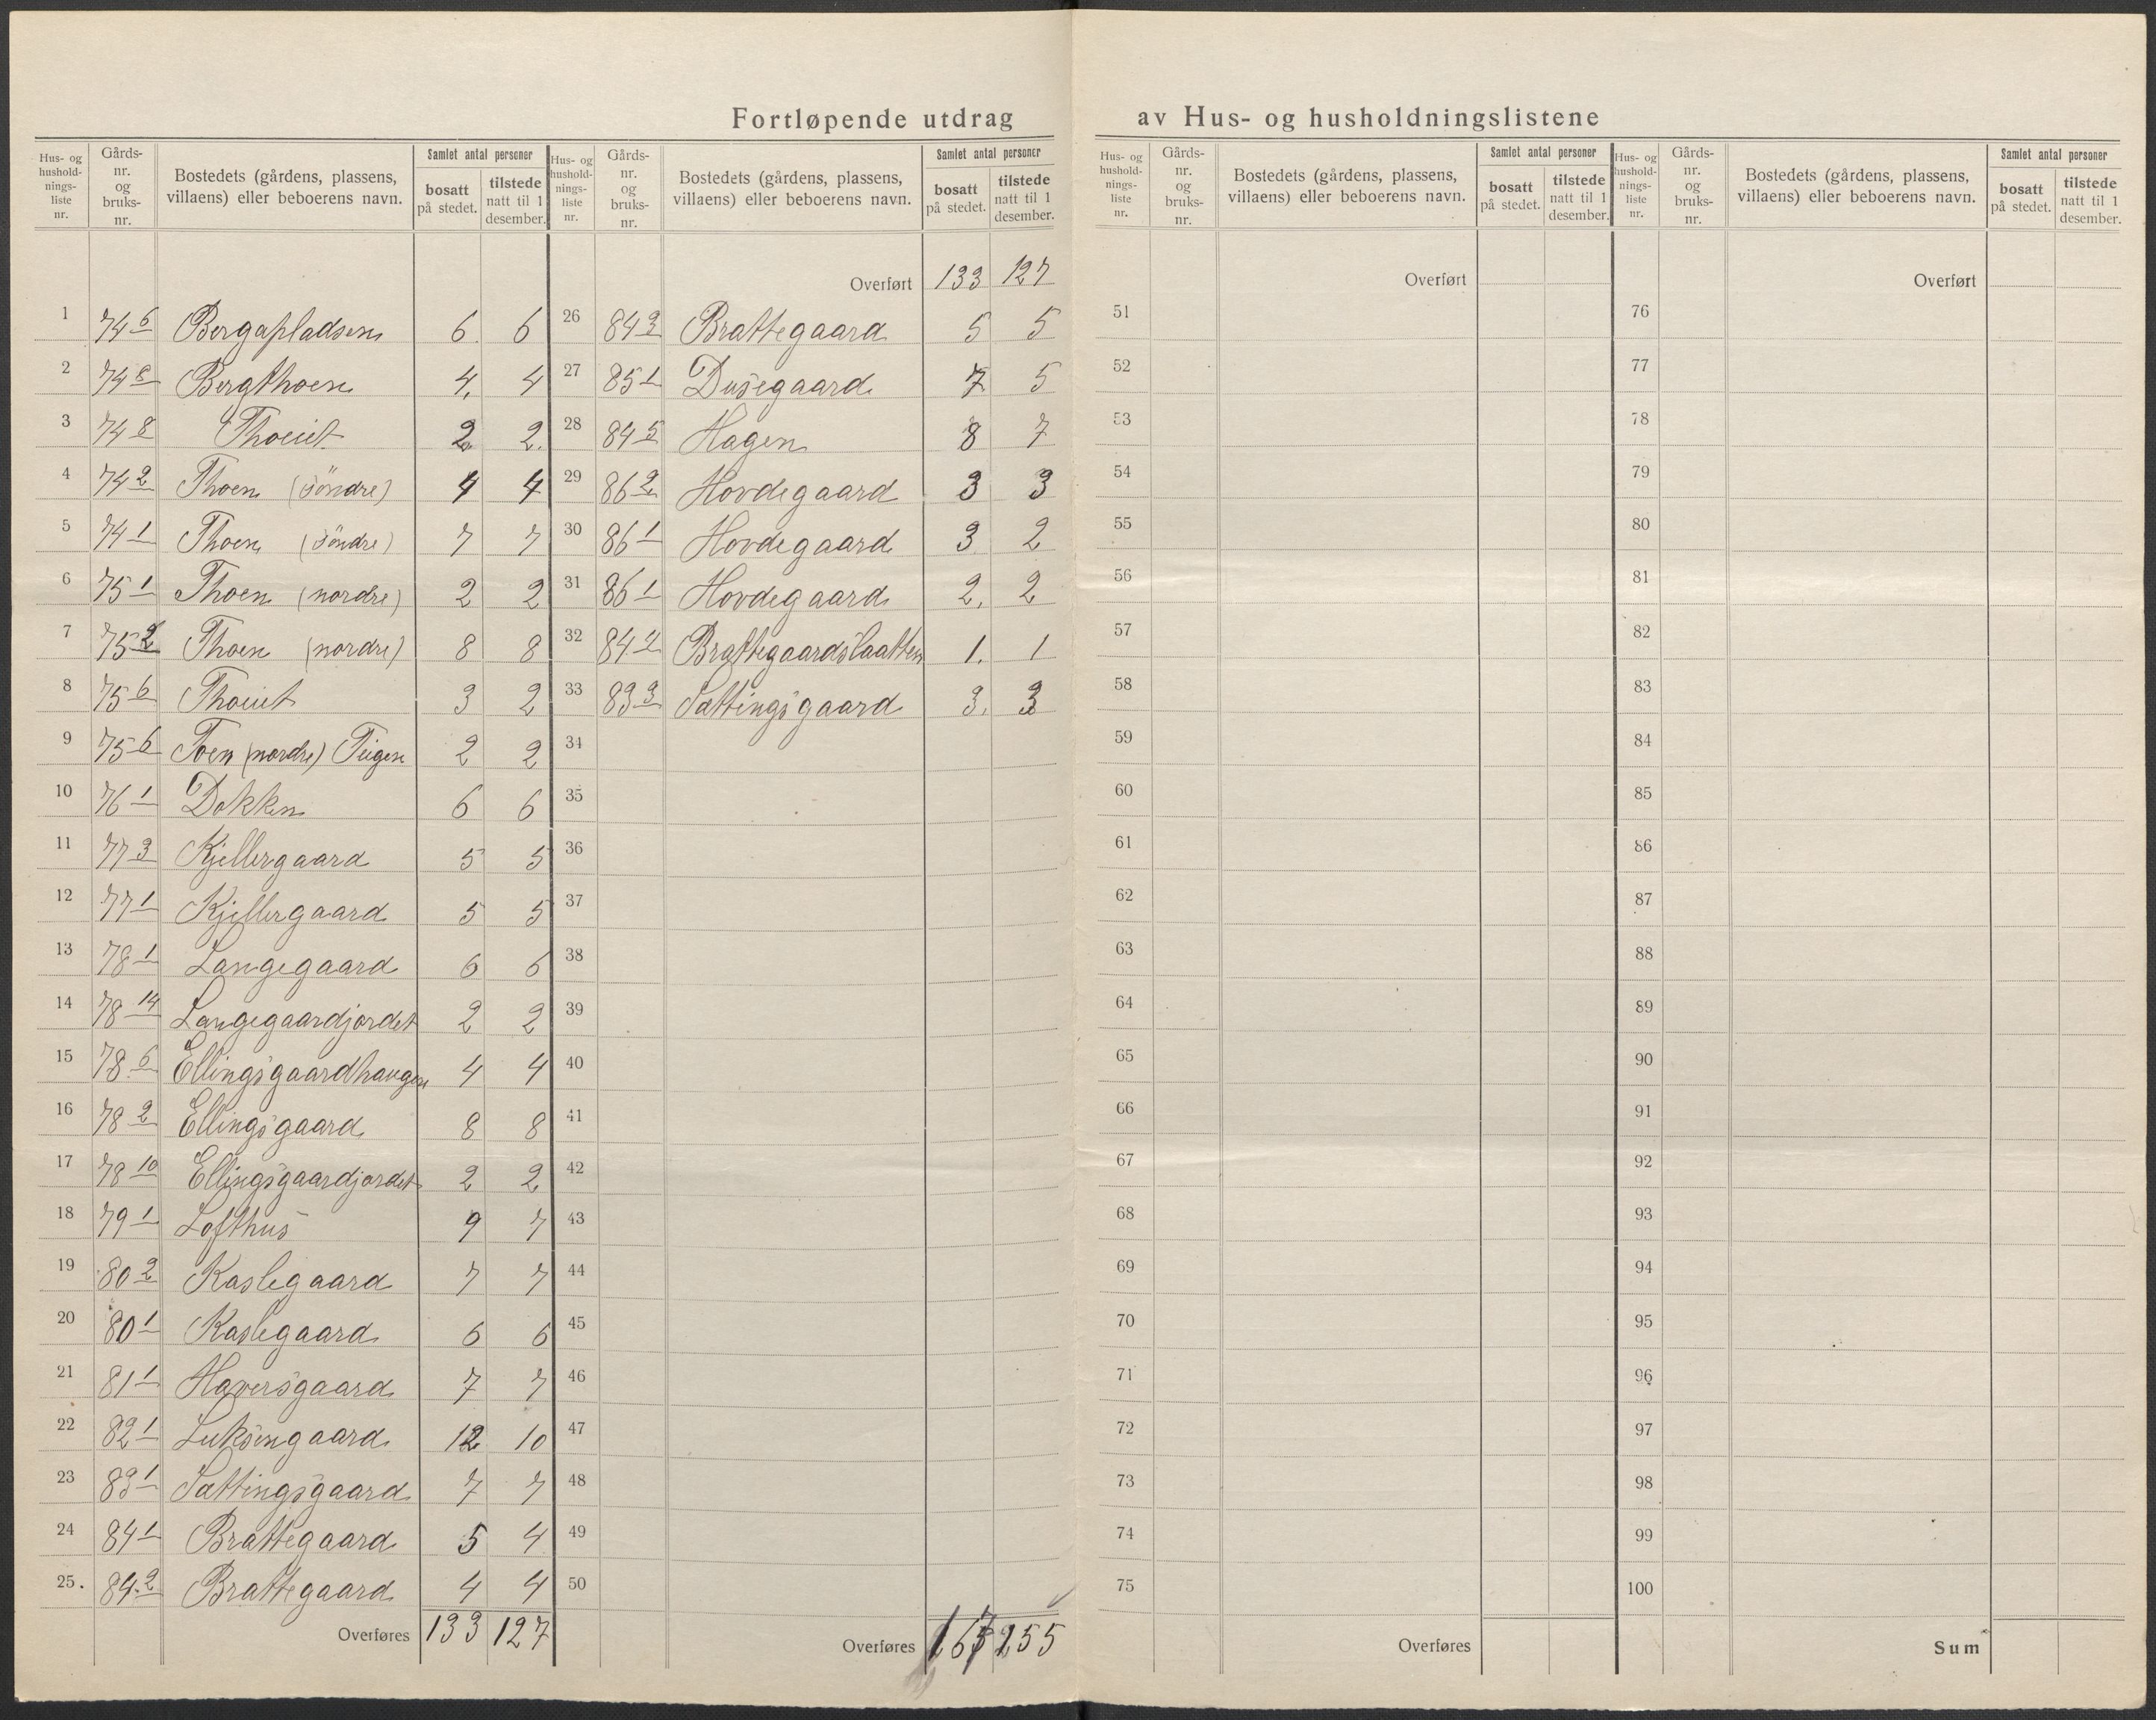 Fortløpende utdrag av Hus- og husholdningslistene
Hus- og hushold-nings-liste nr. | Gårds-nr. og bruks-nr. | Bostedets (gårdens, plassens, villaens) eller beboerens navn. | Samlet antal personer | bosatt på stedet. | tilstede natt til 1 desember.
1 74 6 Bergapladsen 6 6
2 74 8 Bergthoen 4 4
3 74 8 Thoeiet 2 2
4 74 2 Thoen (søndre) 4 4
5 74 1 Thoen (søndre) 7 7
6 75 1 Thoen (nordre) 2 2
7 75 2 Thoen (nordre) 8 8
8 75 6 Thoeiet 3 2
9 75 6 Toen (nordre) Teigen 2 2
10 76 1 Dokken 6 6
11 77 3 Kjellergaard 5 5
12 77 1 Kjellergaard 5 5
13 78 1 Langegaard 6 6
14 78 14 Langegaardjordet 2 2
15 78 6 Ellingsgaardhaugen 4 4
16 78 2 Ellingsgaard 8 8
17 78 10 Ellingsgaardjordet 2 2
18 79 1 Lofthus 9 7
19 80 2 Kaslegaard 7 7
20 80 1 Kaslegaard 6 6
21 81 1 Haversgaard 7 7
22 82 1 Luksengaard 12 10
23 83 1 Sættingsgaard 7 7
24 84 1 Brattegaard 5 4
25. 84 2 Brattegaard 4 4
Overføres 133 127
Hus- og hushold-nings-liste nr. | Gårds-nr. og bruks-nr. | Bostedets (gårdens, plassens, villaens) eller beboerens navn. | Samlet antal personer | bosatt på stedet. | tilstede natt til 1 desember.
Overført 133 127
26 84 3 Brattegaard 5 5
27 85 1 Dusegaard 7 5
28 84 5 Hagen 8 7
29 86 2 Hovdegaard 3 3
30 86 1 Hovdegaard 3 2
31 86 1 Hovdegaard 2. 2
32 84 4 Brattegaardslaatten 1. 1
33 83 3 Sættingsgaard 3. 3
34
35
36
37
38
39
40
41
42
43
44
45
46
47
48
49
50
Overføres 155
Hus- og hushold-nings-liste nr. | Gårds-nr. og bruks-nr. | Bostedets (gårdens, plassens, villaens) eller beboerens navn. | Samlet antal personer | bosatt på stedet. | tilstede natt til 1 desember.
Overført
51
52
53
54
55
56
57
58
59
60
61
62
63
64
65
66
67
68
69
70
71
72
73
74
75
Overføres
Hus- og hushold-nings-liste nr. | Gårds-nr. og bruks-nr. | Bostedets (gårdens, plassens, villaens) eller beboerens navn. | Samlet antal personer | bosatt på stedet. | tilstede natt til 1 desember.
Overført
76
77
78
79
80
81
82
83
84
85
86
87
88
89
90
91
92
93
94
95
96
97
98
99
100
Sum